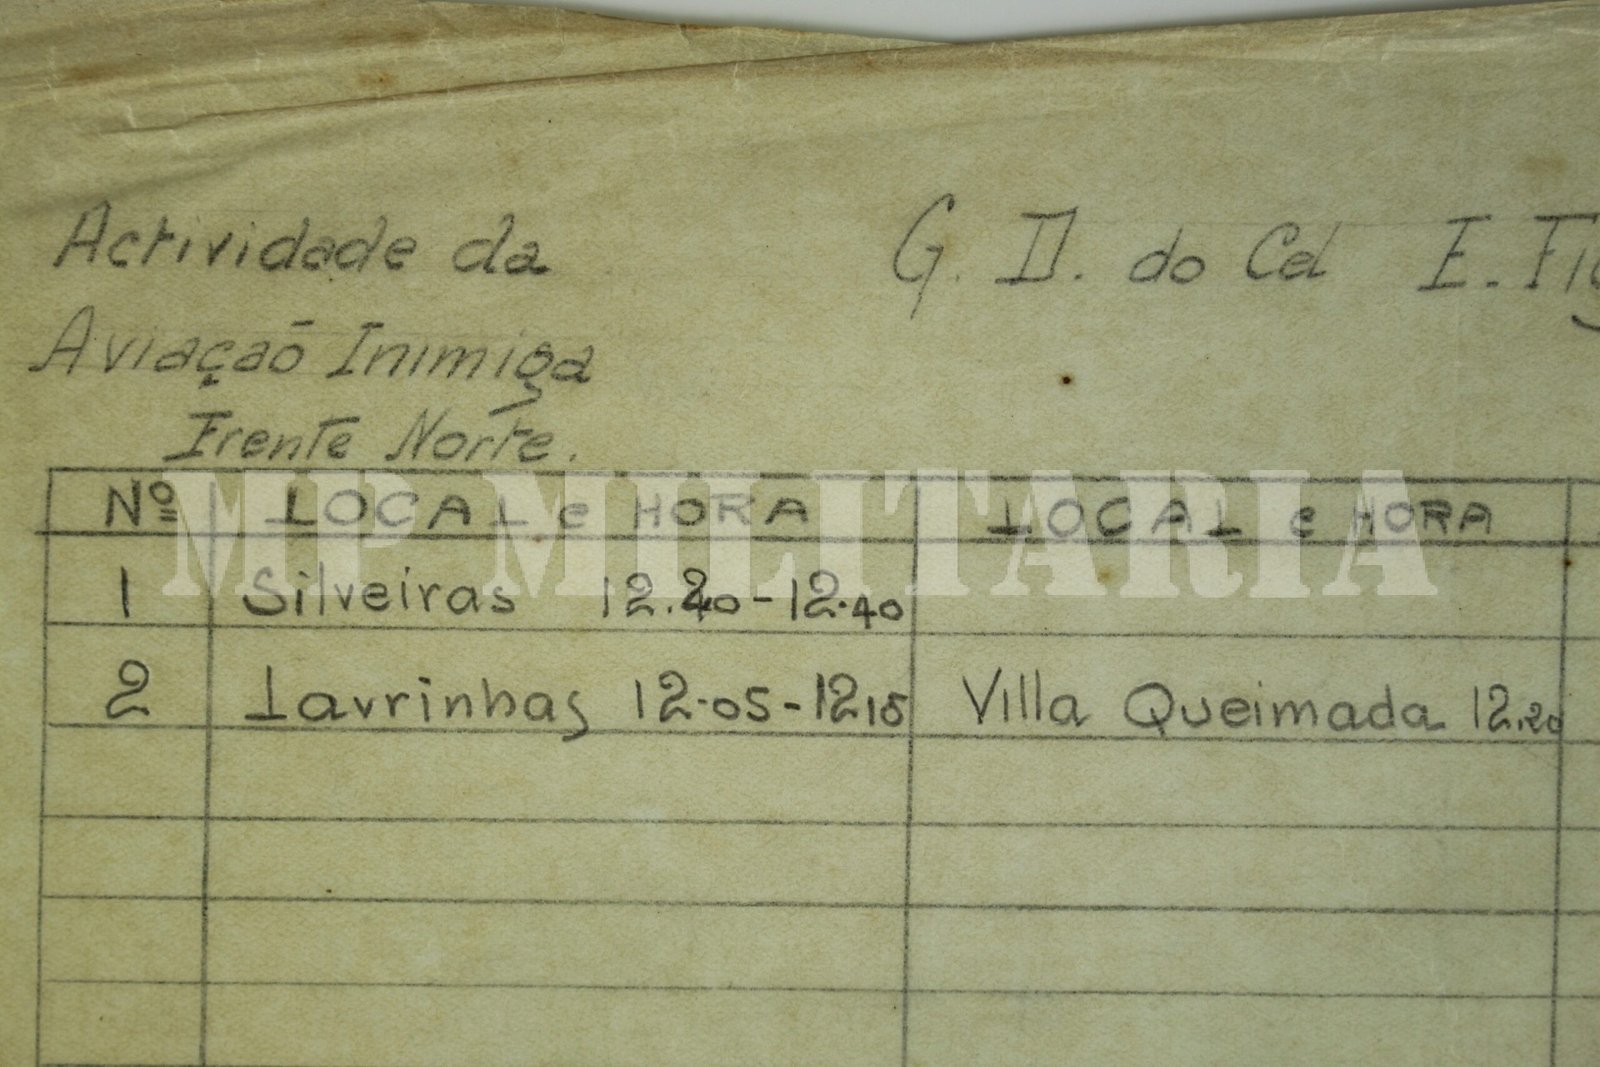 Actividade da
G. D. do Cel E. Fig
Aviação Inimiga
Frente Norte.
Nº LOCAL e HORA LOCAL e HORA
MP MILITARIA
1 Silveiras 12.20-12.40
2 Lavrinhas 12.05-1215 Villa Queimada 12.20